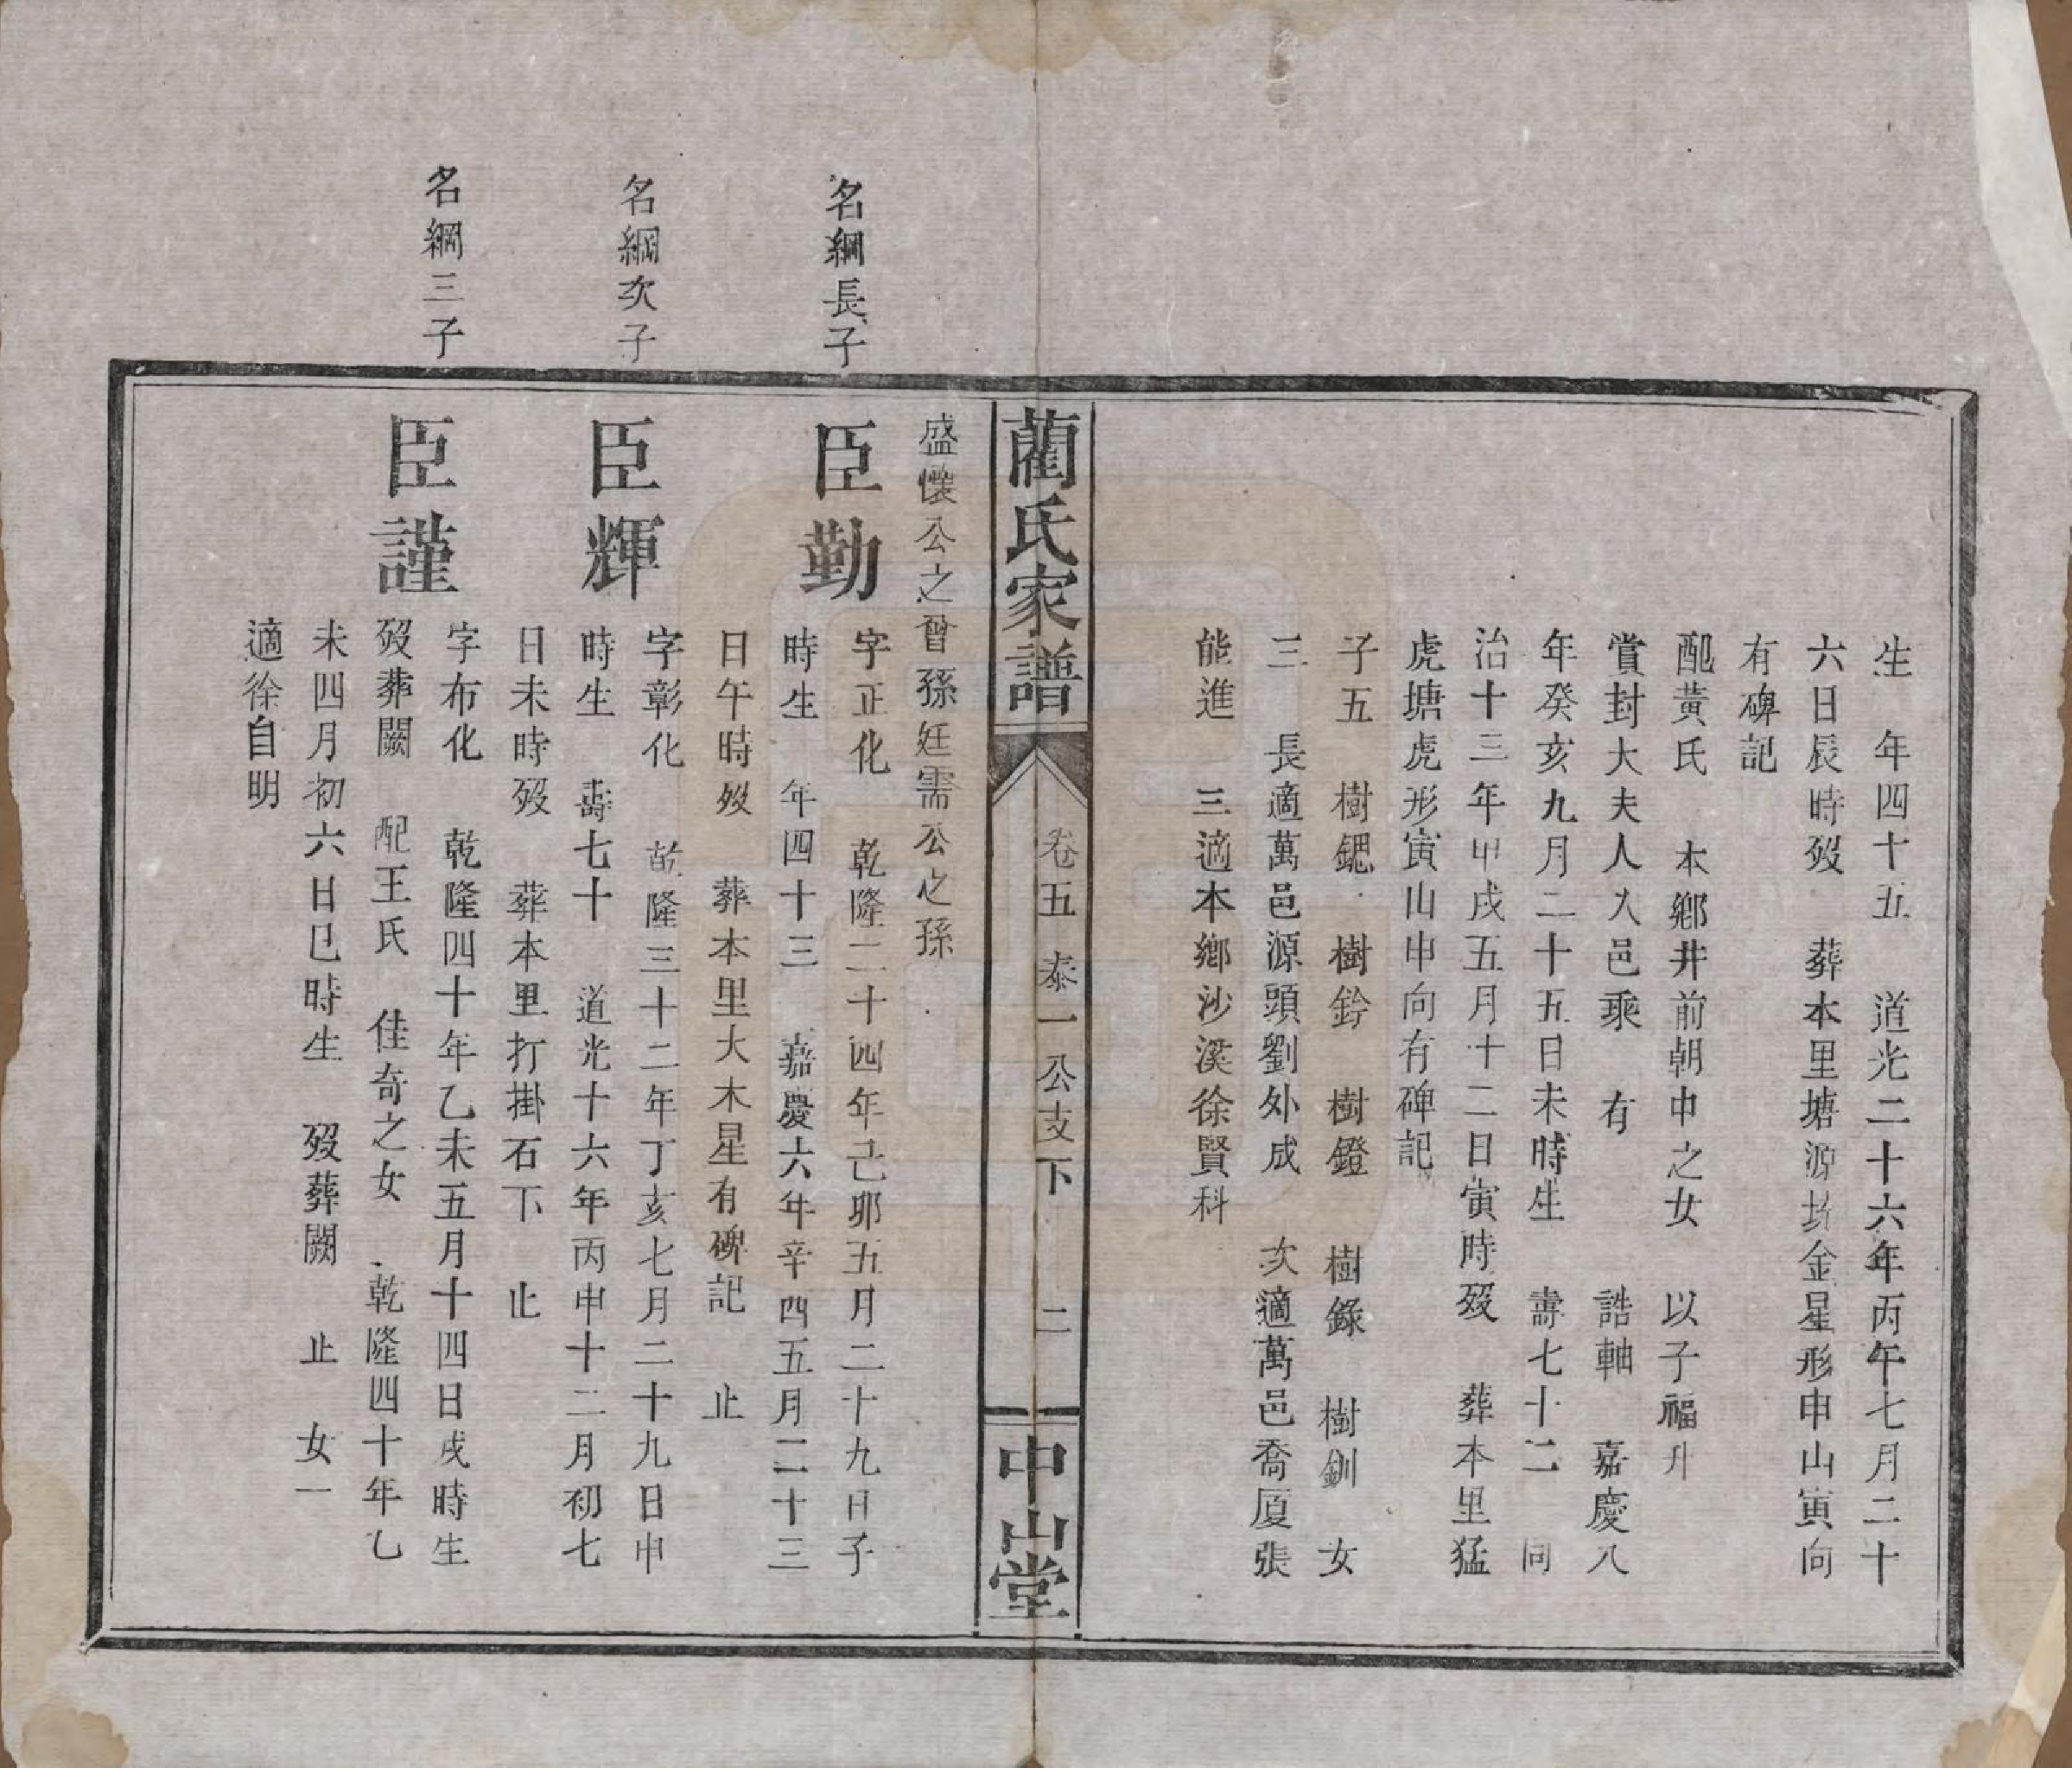 生　年四十五　道光二十六年丙午七月二十
六日辰時歿　葬本里塘源塝金星形申山寅向
有碑記
配黃氏　本鄉井前朝中之女　以子福升
賞封大夫人入邑乘　有　誥軸　嘉慶八
年癸亥九月二十五日未時生　壽七十二　同
治十三年甲戌五月十二日寅時歿　葬本里猛
虎塘虎形寅山申向有碑記
子五　樹鍶　樹鈴　樹鐙　樹錄　樹釧　女
三　長適萬邑源頭劉外成　次適萬邑喬厦張
能進　三適本鄉沙溪徐賢科
藺氏家譜　卷五　泰一公支下　二　中山堂
盛懷公之曾孫廷需公之孫
名綱長子
臣勤　字正化　乾隆二十四年己卯五月二十九日子
時生　年四十三　嘉慶六年辛四五月二十三
日午時歿　葬本里大木星有碑記　止
名綱次子
臣輝　字彰化　乾隆三十二年丁亥七月二十九日申
時生　壽七十　道光十六年丙申十二月初七
日未時歿　葬本里打掛石下　止
名綱三子
臣謹　字布化　乾隆四十年乙未五月十四日戌時生
歿葬闕　配王氏　佳奇之女　乾隆四十年乙
未四月初六日巳時生　歿葬闕　止　女一
適徐自明